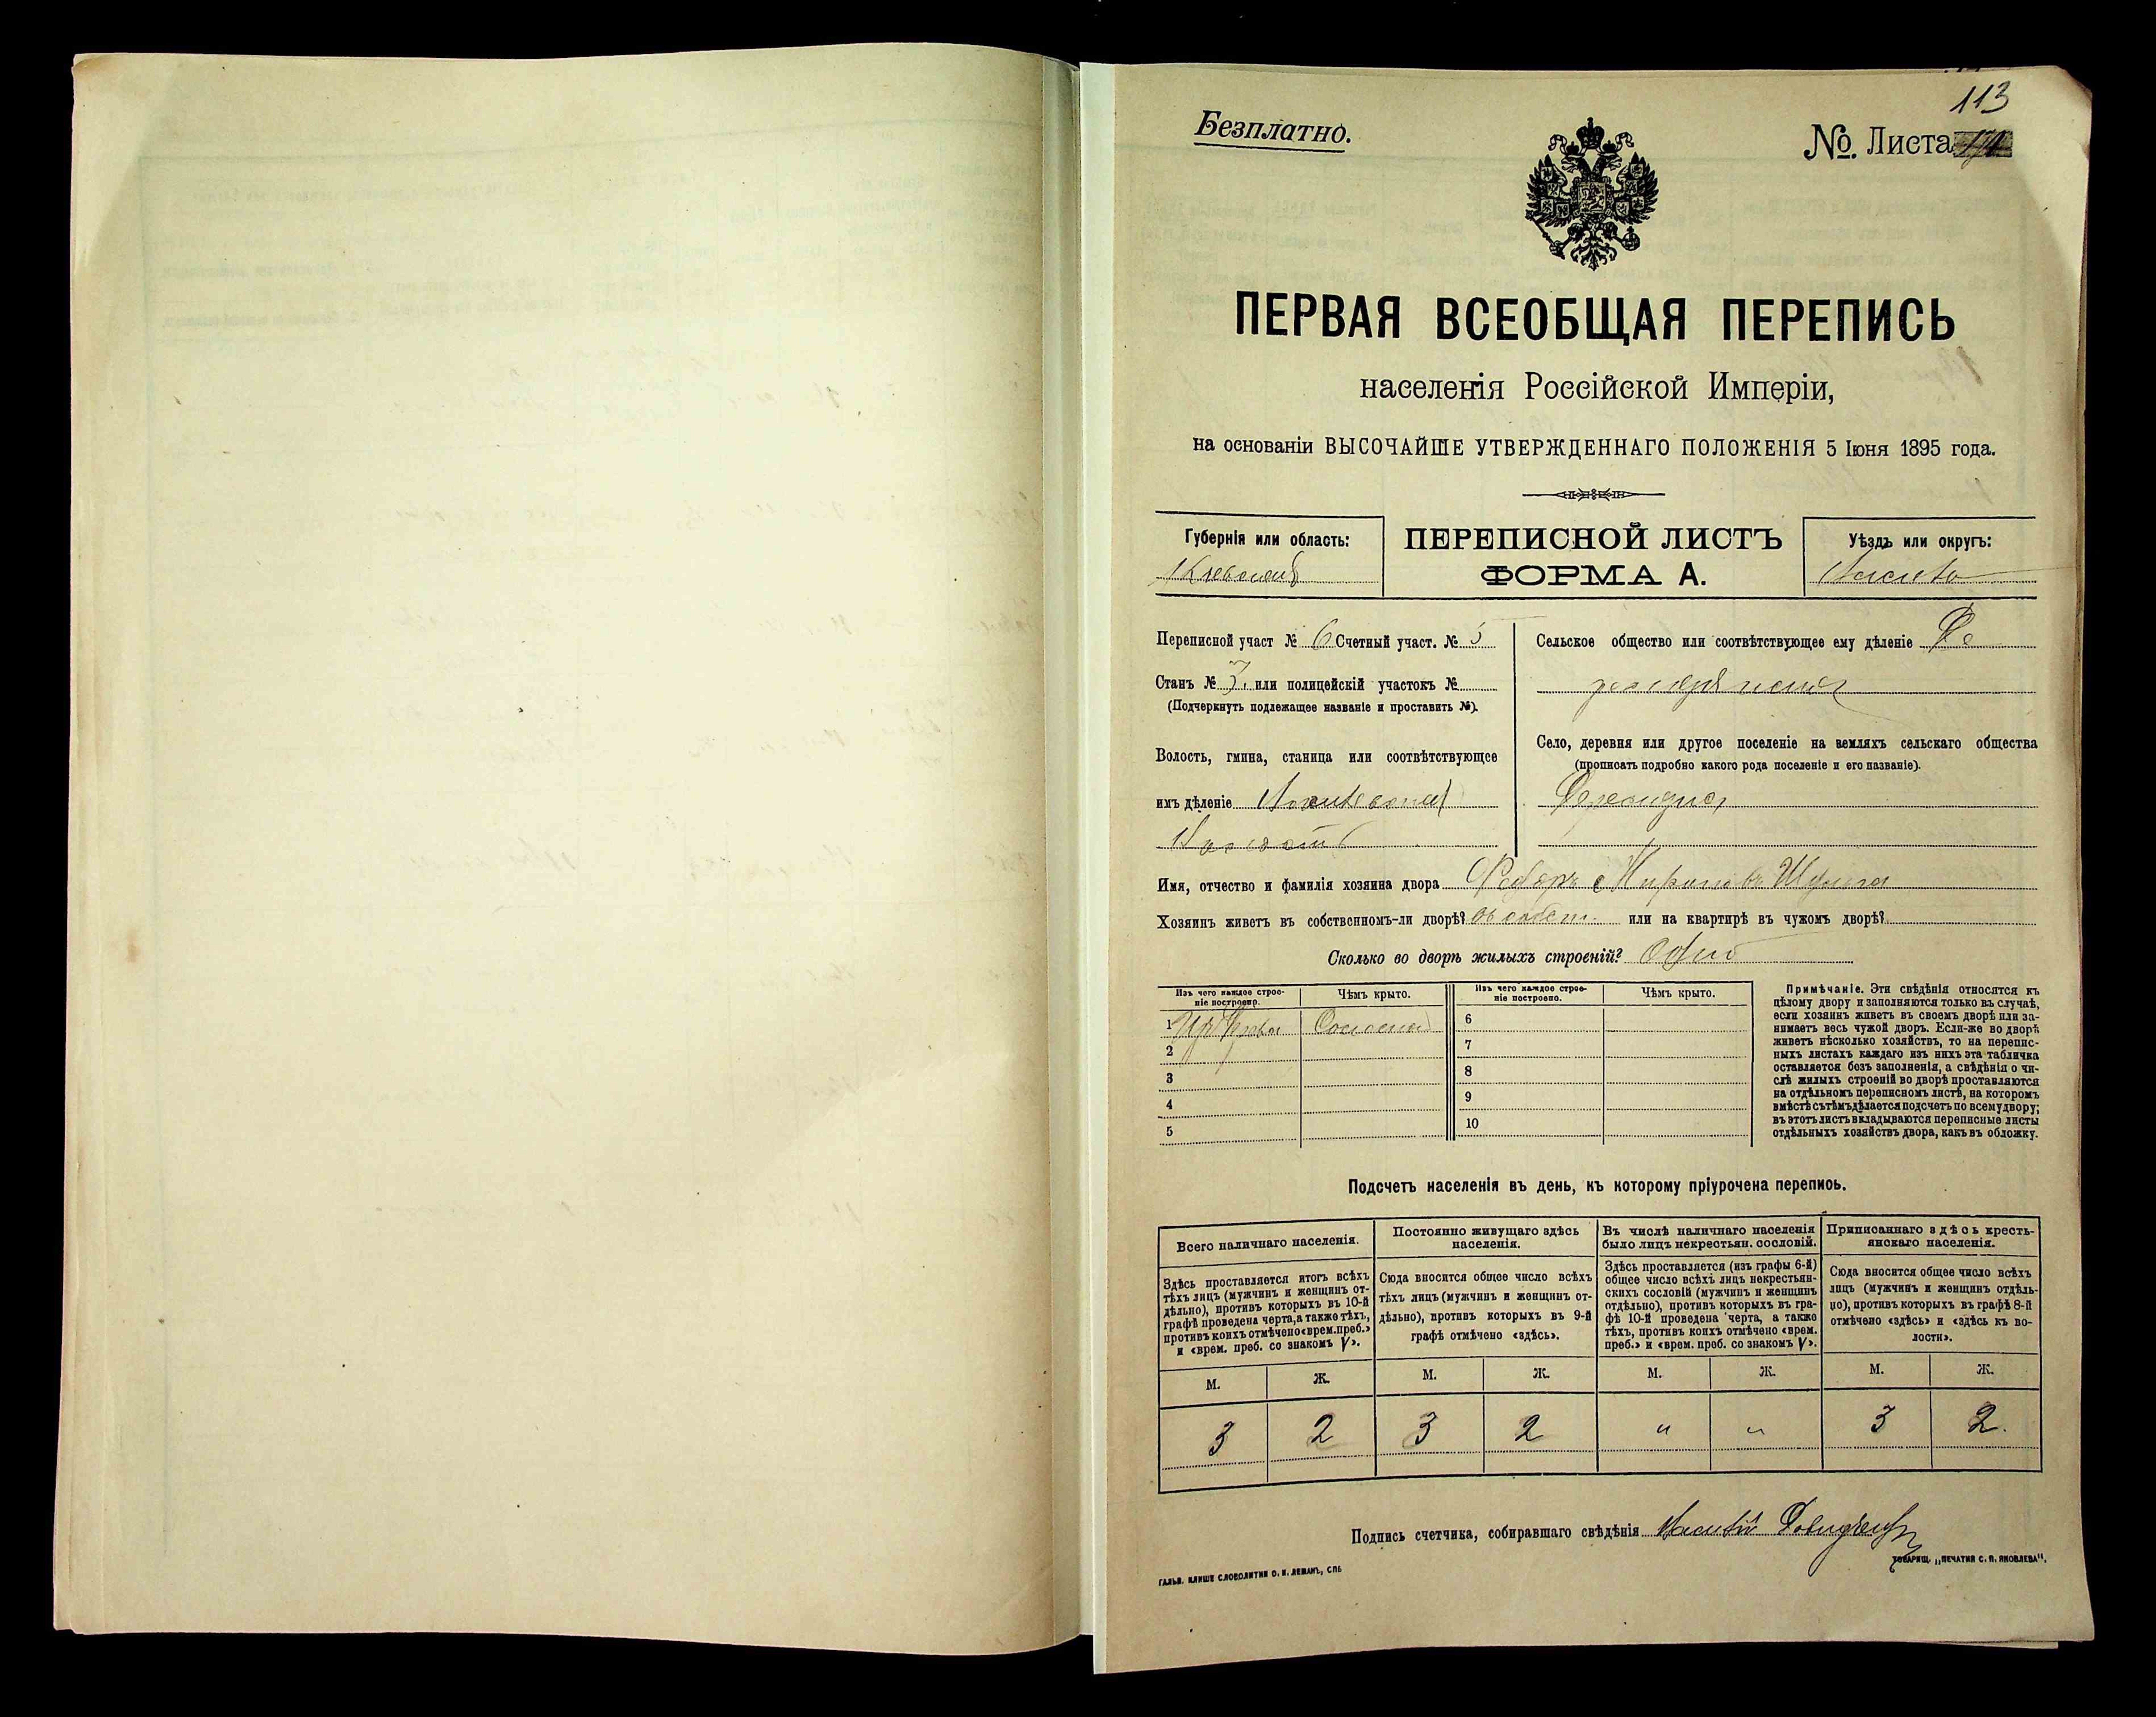 113
Безплатно.
№ Листа
ПЕРВАЯ ВСЕОБЩАЯ ПЕРЕПИСЬ
населенія Россійской Имперіи,
на основаніи ВЫСОЧАЙШЕ УТВЕРЖДЕННАГО ПОЛОЖЕНІЯ 5 Іюня 1895 года.
Губернія или область:
Кіевская
ПЕРЕПИСНОЙ ЛИСТЪ
ФОРМА А.
Уѣздъ или округъ:
Переписной участ № 6 Счетный участ. № 5
Станъ № 3, или полицейскій участокъ №
(Подчеркнуть подлежащее названіе и проставить №).
Волость, гмина, станица или соотвѣтствующее
имъ дѣленіе
Волость
Сельское общество или соотвѣтствующее ему дѣленіе
Село, деревня или другое поселеніе на земляхъ сельскаго общества
(прописать подробно какого рода поселеніе и его названіе).
Имя, отчество и фамилія хозяина двора Федоръ Мироновъ Шулга
Хозяинъ живетъ въ собственномъ-ли дворѣ? въ собст. или на квартирѣ въ чужомъ дворѣ?
Сколько во дворѣ жилыхъ строеній? Одно
Изъ чего каждое строеніе построено. Чѣмъ крыто. Изъ чего каждое строеніе построено. Чѣмъ крыто.
1 Изъ дерева Соломою 6
2 7
3 8
4 9
5 10
Примѣчаніе. Эти свѣдѣнія относятся къ
цѣлому двору и заполняются только въ случаѣ,
если хозяинъ живетъ въ своемъ дворѣ или за-
нимаетъ весь чужой дворъ. Если-же во дворѣ
живетъ нѣсколько хозяйствъ, то на перепис-
ныхъ листахъ каждаго изъ нихъ эта табличка
оставляется безъ заполненія, а свѣдѣнія о чи-
слѣ жилыхъ строеній во дворѣ проставляются
на отдѣльномъ переписномъ листѣ, на которомъ
вмѣстѣ съ тѣмъ дѣлается подсчетъ по всему двору;
въ этотъ листъ вкладываются переписные листы
отдѣльныхъ хозяйствъ двора, какъ въ обложку.
Подсчетъ населенія въ день, къ которому пріурочена перепись.
Всего наличнаго населенія.
Здѣсь проставляется итогъ всѣхъ
тѣхъ лицъ (мужчинъ и женщинъ от-
дѣльно), противъ которыхъ въ 10-й
графѣ проведена черта, а также тѣхъ,
противъ коихъ отмѣчено «врем. преб.»
и «врем. преб. со знакомъ V».
Постоянно живущаго здѣсь
населенія.
Сюда вносится общее число всѣхъ
тѣхъ лицъ (мужчинъ и женщинъ от-
дѣльно), противъ которыхъ въ 9-й
графѣ отмѣчено «здѣсь».
Въ числѣ наличнаго населенія
было лицъ некрестьян. сословій.
Здѣсь проставляется (изъ графы 6-й)
общее число всѣхъ лицъ некрестьян-
скихъ сословій (мужчинъ и женщинъ
отдѣльно), противъ которыхъ въ гра-
фѣ 10-й проведена черта, а также
тѣхъ, противъ коихъ отмѣчено «врем.
преб.» и «врем. преб. со знакомъ V».
Приписаннаго здѣсь кресть-
янскаго населенія.
Сюда вносится общее число всѣхъ
лицъ (мужчинъ и женщинъ отдѣль-
но), противъ которыхъ въ графѣ 8-й
отмѣчено «здѣсь» и «здѣсь къ во-
лости».
М. Ж. М. Ж. М. Ж. М. Ж.
3 2 3 2 " " 3 2.
Подпись счетчика, собиравшаго свѣдѣнія
ГАЛЬВ. КЛИШЕ СЛОВОЛИТНИ О. И. ЛЕМАНЪ, СПБ
ТОВАРИЩ. „ПЕЧАТНЯ С. П. ЯКОВЛЕВА".